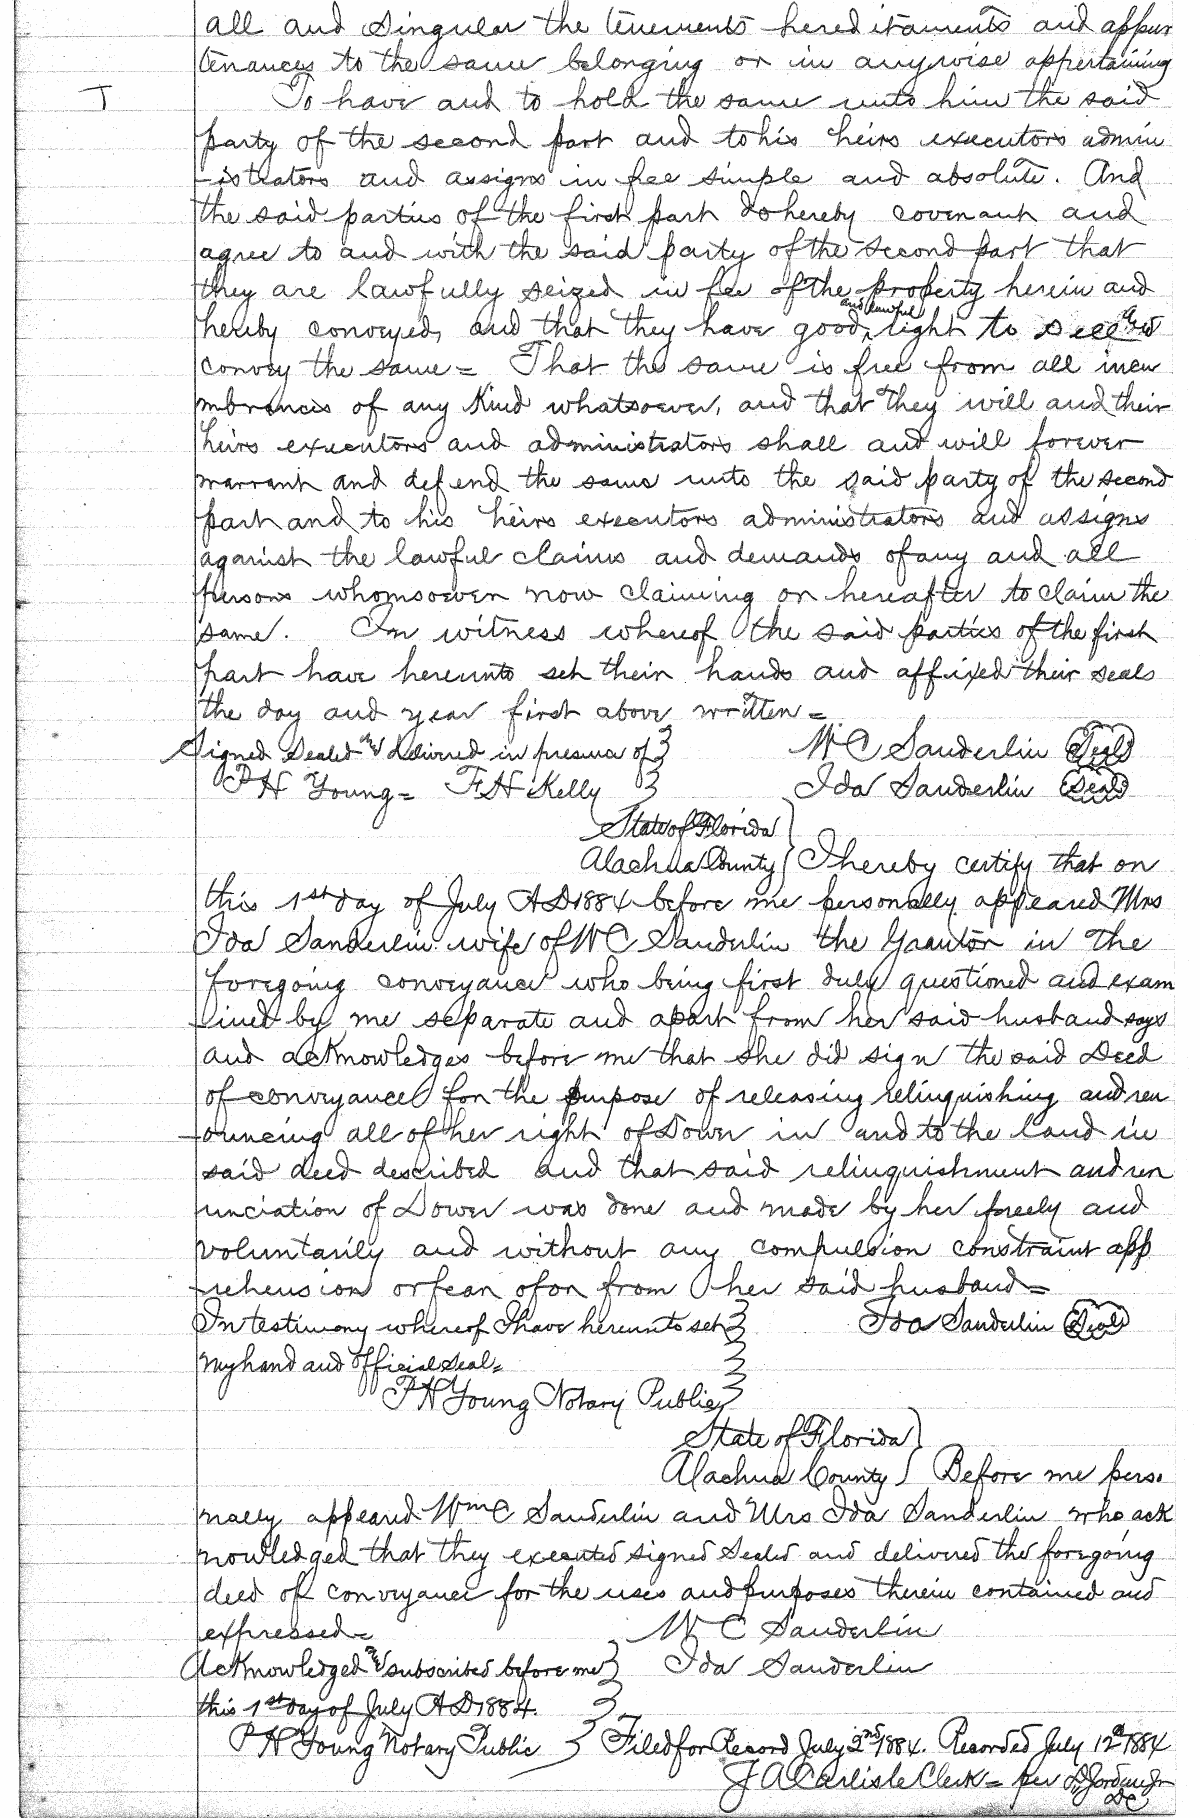 all and Singular the tenements hereditaments and appur
tenances to the same belonging or in anywise appertaining
T To have and to hold the same unto him the said
party of the second part and to his heirs executors admin
-istrators and assigns in fee simple and absolute. And
the said parties of the first part do hereby covenant and
agree to and with the said party of the second part that
they are lawfully seized in fee of the property herein and
hereby conveyed, and that they have good and lawful right to sell and
convey the same = That the same is free from all incu
mbrances of any Kind whatsoever, and that they will and their
heirs executors and administrators shall and will forever
warrant and defend the same unto the said party of the second
part and to his heirs executors administrators and assigns
against the lawful claims and demands of any and all
persons whomsoever now claiming or hereafter to claim the
same. In witness whereof the said parties of the first
part have hereunto set their hands and affixed their seals
the day and year first above written =
Signed Sealed and delivered in presence of W C Sanderlin Seal
P H Young = F H Kelly Ida Sanderlin Seal
State of Florida
Alachua County I hereby certify that on
this 1st day of July AD 1884 before me personally appeared Mrs
Ida Sanderlin wife of W C Sanderlin the Grantor in the
foregoing conveyance who being first duly questioned and exam
-ined by me separate and apart from her said husband says
and acknowledges before me that she did sign the said Deed
of conveyance for the purpose of releasing relinquishing and ren
-ouncing all of her right of Dower in and to the land in
said deed described and that said relinquishment and ren
unciation of Dower was done and made by her freely and
voluntarily and without any compulsion constraint app
rehension or fear of or from her said husband =
In testimony whereof I have hereunto set Ida Sanderlin Seal
my hand and official seal =
P H Young Notary Public
State of Florida
Alachua County Before me perso
nally appeared Wm C Sanderlin and Mrs Ida Sanderlin who ack
nowledged that they executed signed Sealed and delivered the foregoing
deed of conveyance for the uses and purposes therein contained and
expressed = W C Sanderlin
Acknowledged and subscribed before me Ida Sanderlin
this 1st day of July AD 1884.
P H Young Notary Public Filed for Record July 2nd 1884. Recorded July 12th 1884
J A Carlisle Clerk = per Jordan Jr
DC